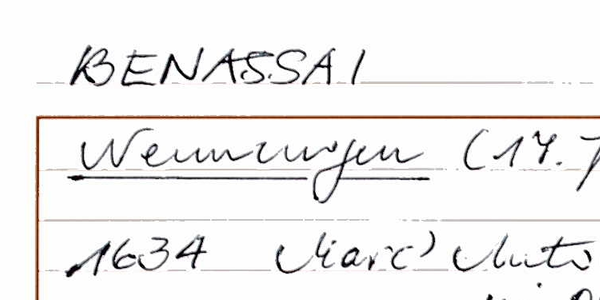 BENASSAI
Nennungen (17.
1634 Marc' Anto